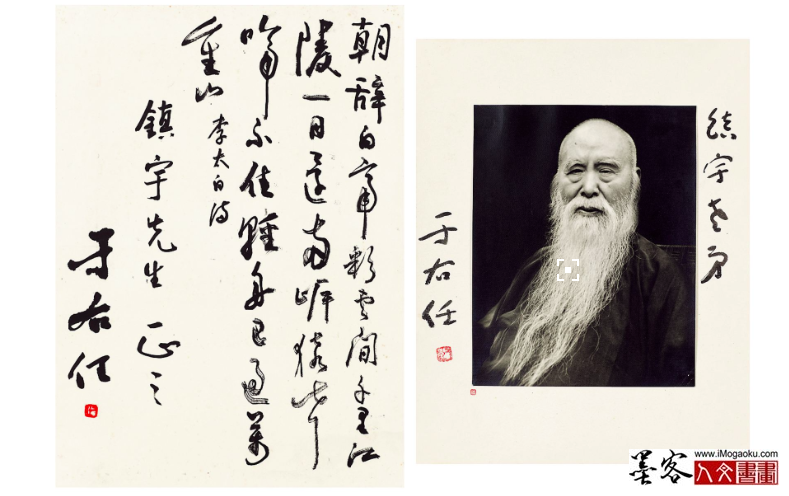 朝辭白帝彩雲間千里江
陵一日還兩岸猿聲
啼不住輕舟已過萬
重山 李太白詩
鎮宇先生 正之
于右任
鎮宇老弟
于右任
墨客
www.iMogaoku.com
人文書畫